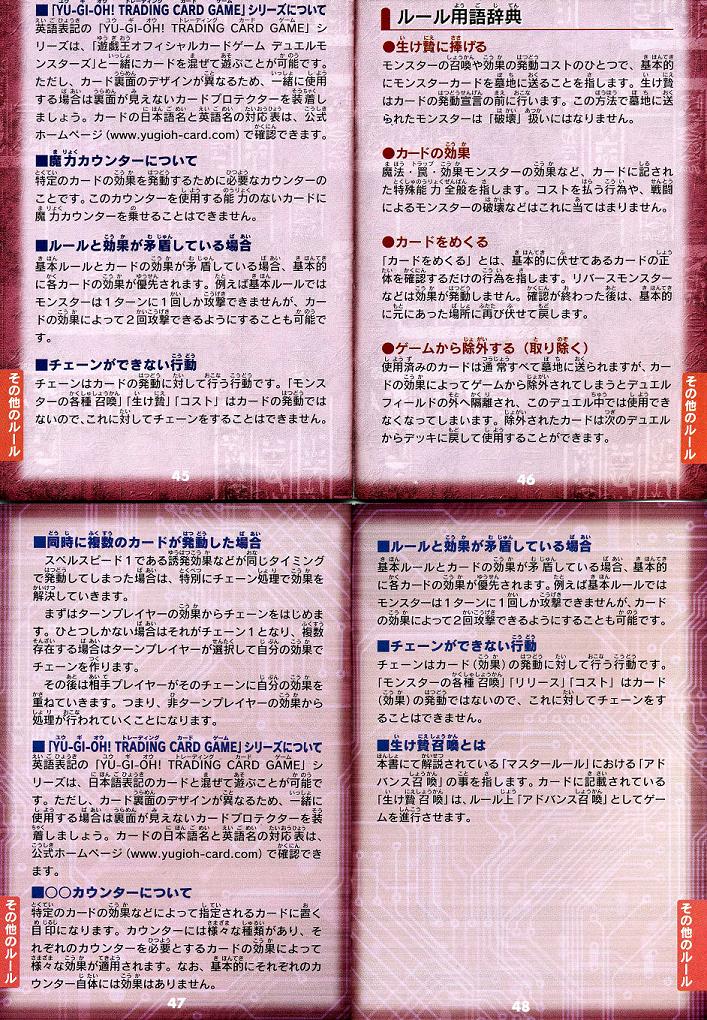 ■「YU-GI-OH! TRADING CARD GAME」シリーズについて
英語表記の「YU-GI-OH! TRADING CARD GAME」シ
リーズは、「遊戯王オフィシャルカードゲーム デュエルモ
ンスターズ」と一緒にカードを混ぜて遊ぶことが可能です。
ただし、カード裏面のデザインが異なるため、一緒に使用
する場合は裏面が見えないカードプロテクターを装着し
ましょう。カードの日本語名と英語名の対応表は、公式
ホームページ(www.yugioh-card.com)で確認できます。
■魔力カウンターについて
特定のカードの効果を発動するために必要なカウンターの
ことです。このカウンターを使用する能力のないカードに
魔力カウンターを乗せることはできません。
■ルールと効果が矛盾している場合
基本ルールとカードの効果が矛盾している場合、基本的
に各カードの効果が優先されます。例えば基本ルールでは
モンスターは1ターンに1回しか攻撃できませんが、カー
ドの効果によって2回攻撃できるようにすることも可能で
す。
■チェーンができない行動
チェーンはカードの発動に対して行う行動です。「モンス
ターの各種召喚」「生け贄」「コスト」はカードの発動では
ないので、これに対してチェーンをすることはできません。
その他のルール
45
ルール用語辞典
●生け贄に捧げる
モンスターの召喚や効果の発動コストのひとつで、基本的
にモンスターカードを墓地に送ることを指します。生け贄
はカードの発動宣言の前に行います。この方法で墓地に送
られたモンスターは「破壊」扱いにはなりません。
●カードの効果
魔法・罠・効果モンスターの効果など、カードに記され
た特殊能力全般を指します。コストを払う行為や、戦闘
によるモンスターの破壊などはこれに当てはまりません。
●カードをめくる
「カードをめくる」とは、基本的に伏せてあるカードの正
体を確認するだけの行為を指します。リバースモンスター
などは効果が発動しません。確認が終わった後は、基本的
に元にあった場所に再び伏せて戻します。
●ゲームから除外する(取り除く)
使用済みのカードは通常すべて墓地に送られますが、カー
ドの効果によってゲームから除外されてしまうとデュエル
フィールドの外へ隔離され、このデュエル中では使用でき
なくなってしまいます。除外されたカードは次のデュエル
からデッキに戻して使用することができます。
その他のルール
46
■同時に複数のカードが発動した場合
スペルスピード1である誘発効果などが同じタイミング
で発動してしまった場合は、特別にチェーン処理で効果を
解決していきます。
まずはターンプレイヤーの効果からチェーンをはじめま
す。ひとつしかない場合はそれがチェーン1となり、複数
存在する場合はターンプレイヤーが選択して自分の効果で
チェーンを作ります。
その後は相手プレイヤーがそのチェーンに自分の効果を
重ねていきます。つまり、非ターンプレイヤーの効果から
処理が行われていくことになります。
■「YU-GI-OH! TRADING CARD GAME」シリーズについて
英語表記の「YU-GI-OH! TRADING CARD GAME」シ
リーズは、日本語表記のカードと混ぜて遊ぶことが可能で
す。ただし、カード裏面のデザインが異なるため、一緒に
使用する場合は裏面が見えないカードプロテクターを装
着しましょう。カードの日本語名と英語名の対応表は、
公式ホームページ(www.yugioh-card.com)で確認でき
ます。
■○○カウンターについて
特定のカードの効果などによって指定されるカードに置く
目印になります。カウンターには様々な種類があり、そ
れぞれのカウンターを必要とするカードの効果によって
様々な効果が適用されます。なお、基本的にそれぞれのカ
ウンター自体には効果はありません。
その他のルール
47
■ルールと効果が矛盾している場合
基本ルールとカードの効果が矛盾している場合、基本的
に各カードの効果が優先されます。例えば基本ルールでは
モンスターは1ターンに1回しか攻撃できませんが、カード
の効果によって2回攻撃できるようにすることも可能です。
■チェーンができない行動
チェーンはカード(効果)の発動に対して行う行動です。
「モンスターの各種召喚」「リリース」「コスト」はカード
(効果)の発動ではないので、これに対してチェーンをす
ることはできません。
■生け贄召喚とは
本書にて解説されている「マスタールール」における「アド
バンス召喚」の事を指します。カードに記載されている
「生け贄召喚」は、ルール上「アドバンス召喚」としてゲー
ムを進行させます。
その他のルール
48